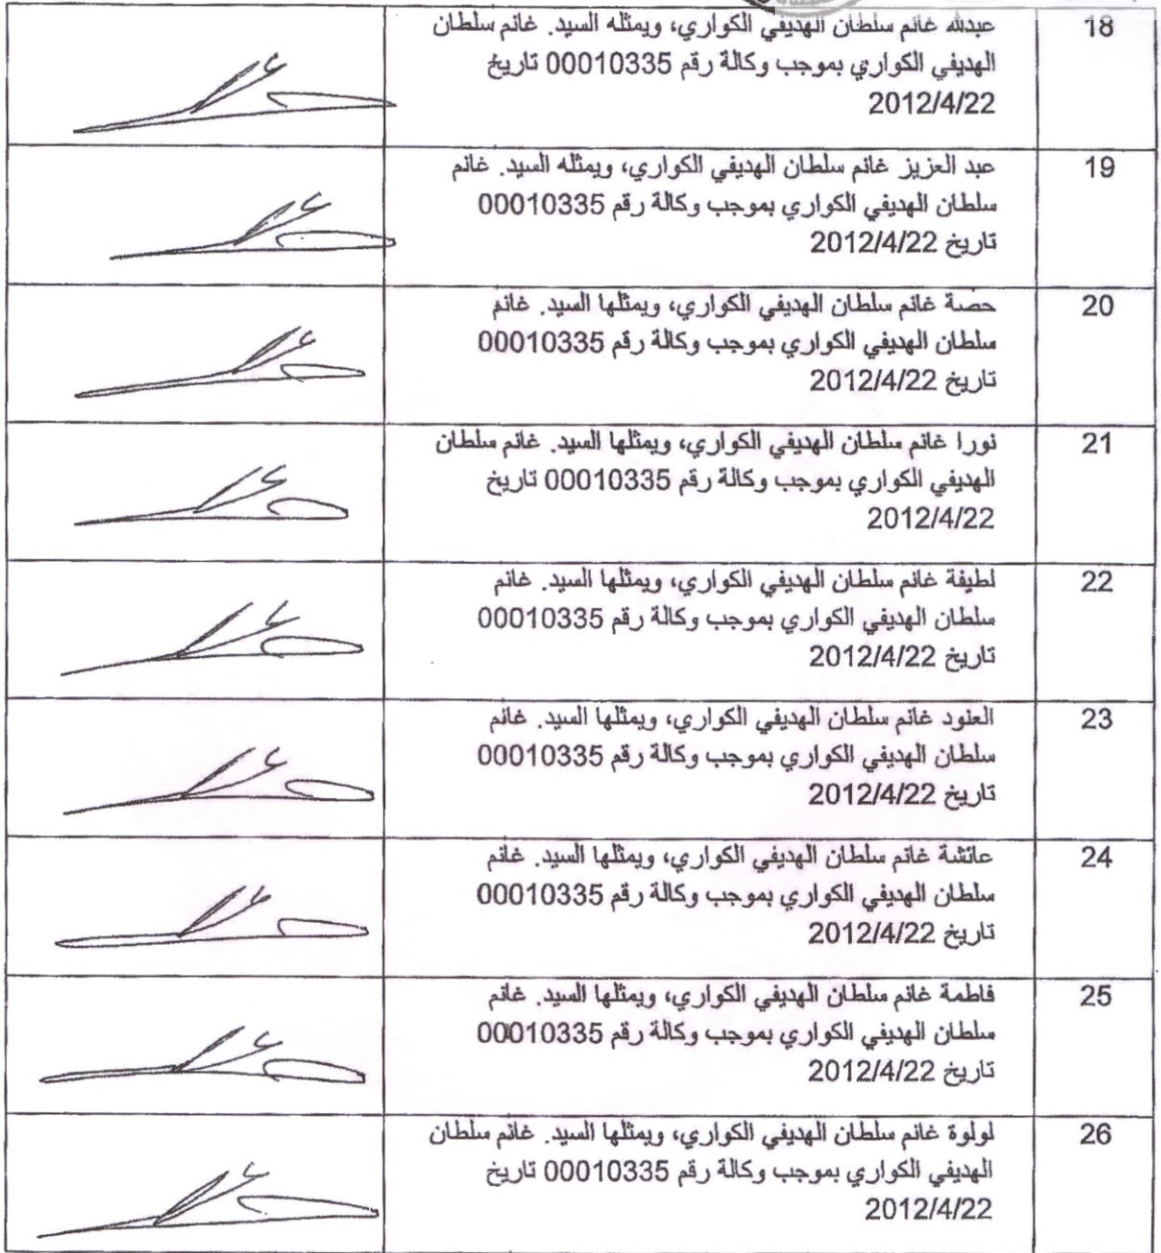 18
عبدالله غانم سلطان الهديفي الكواري، ويمثله السيد. غانم سلطان
الهديفي الكواري بموجب وكالة رقم 00010335 تاريخ
2012/4/22
19
عبد العزيز غانم سلطان الهديفي الكواري، ويمثله السيد. غانم
سلطان الهديفي الكواري بموجب وكالة رقم 00010335
تاريخ 2012/4/22
20
حصة غانم سلطان الهديفي الكواري، ويمثلها السيد. غانم
سلطان الهديفي الكواري بموجب وكالة رقم 00010335
تاريخ 2012/4/22
21
نورا غانم سلطان الهديفي الكواري، ويمثلها السيد. غانم سلطان
الهديفي الكواري بموجب وكالة رقم 00010335 تاريخ
2012/4/22
22
لطيفة غانم سلطان الهديفي الكواري، ويمثلها السيد. غانم
سلطان الهديفي الكواري بموجب وكالة رقم 00010335
تاريخ 2012/4/22
23
العنود غانم سلطان الهديفي الكواري، ويمثلها السيد. غانم
سلطان الهديفي الكواري بموجب وكالة رقم 00010335
تاريخ 2012/4/22
24
عائشة غانم سلطان الهديفي الكواري، ويمثلها السيد. غانم
سلطان الهديفي الكواري بموجب وكالة رقم 00010335
تاريخ 2012/4/22
25
فاطمة غانم سلطان الهديفي الكواري، ويمثلها السيد. غانم
سلطان الهديفي الكواري بموجب وكالة رقم 00010335
تاريخ 2012/4/22
26
لولوة غانم سلطان الهديفي الكواري، ويمثلها السيد. غانم سلطان
الهديفي الكواري بموجب وكالة رقم 00010335 تاريخ
2012/4/22